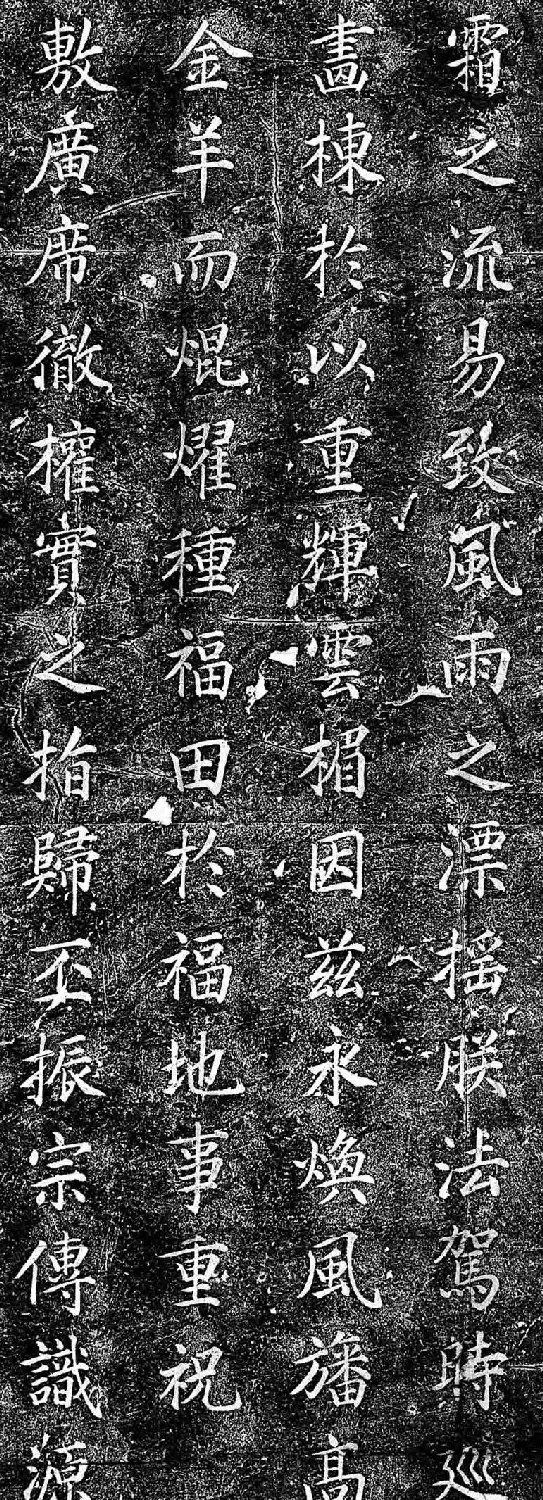 霜之流易致風雨之漂揺朕法駕時巡
畵棟於以重輝雲楣因兹永煥風旛高
金羊而焜燿種福田於福地事重祝
敷廣席徹權實之指歸丕振宗傳識源